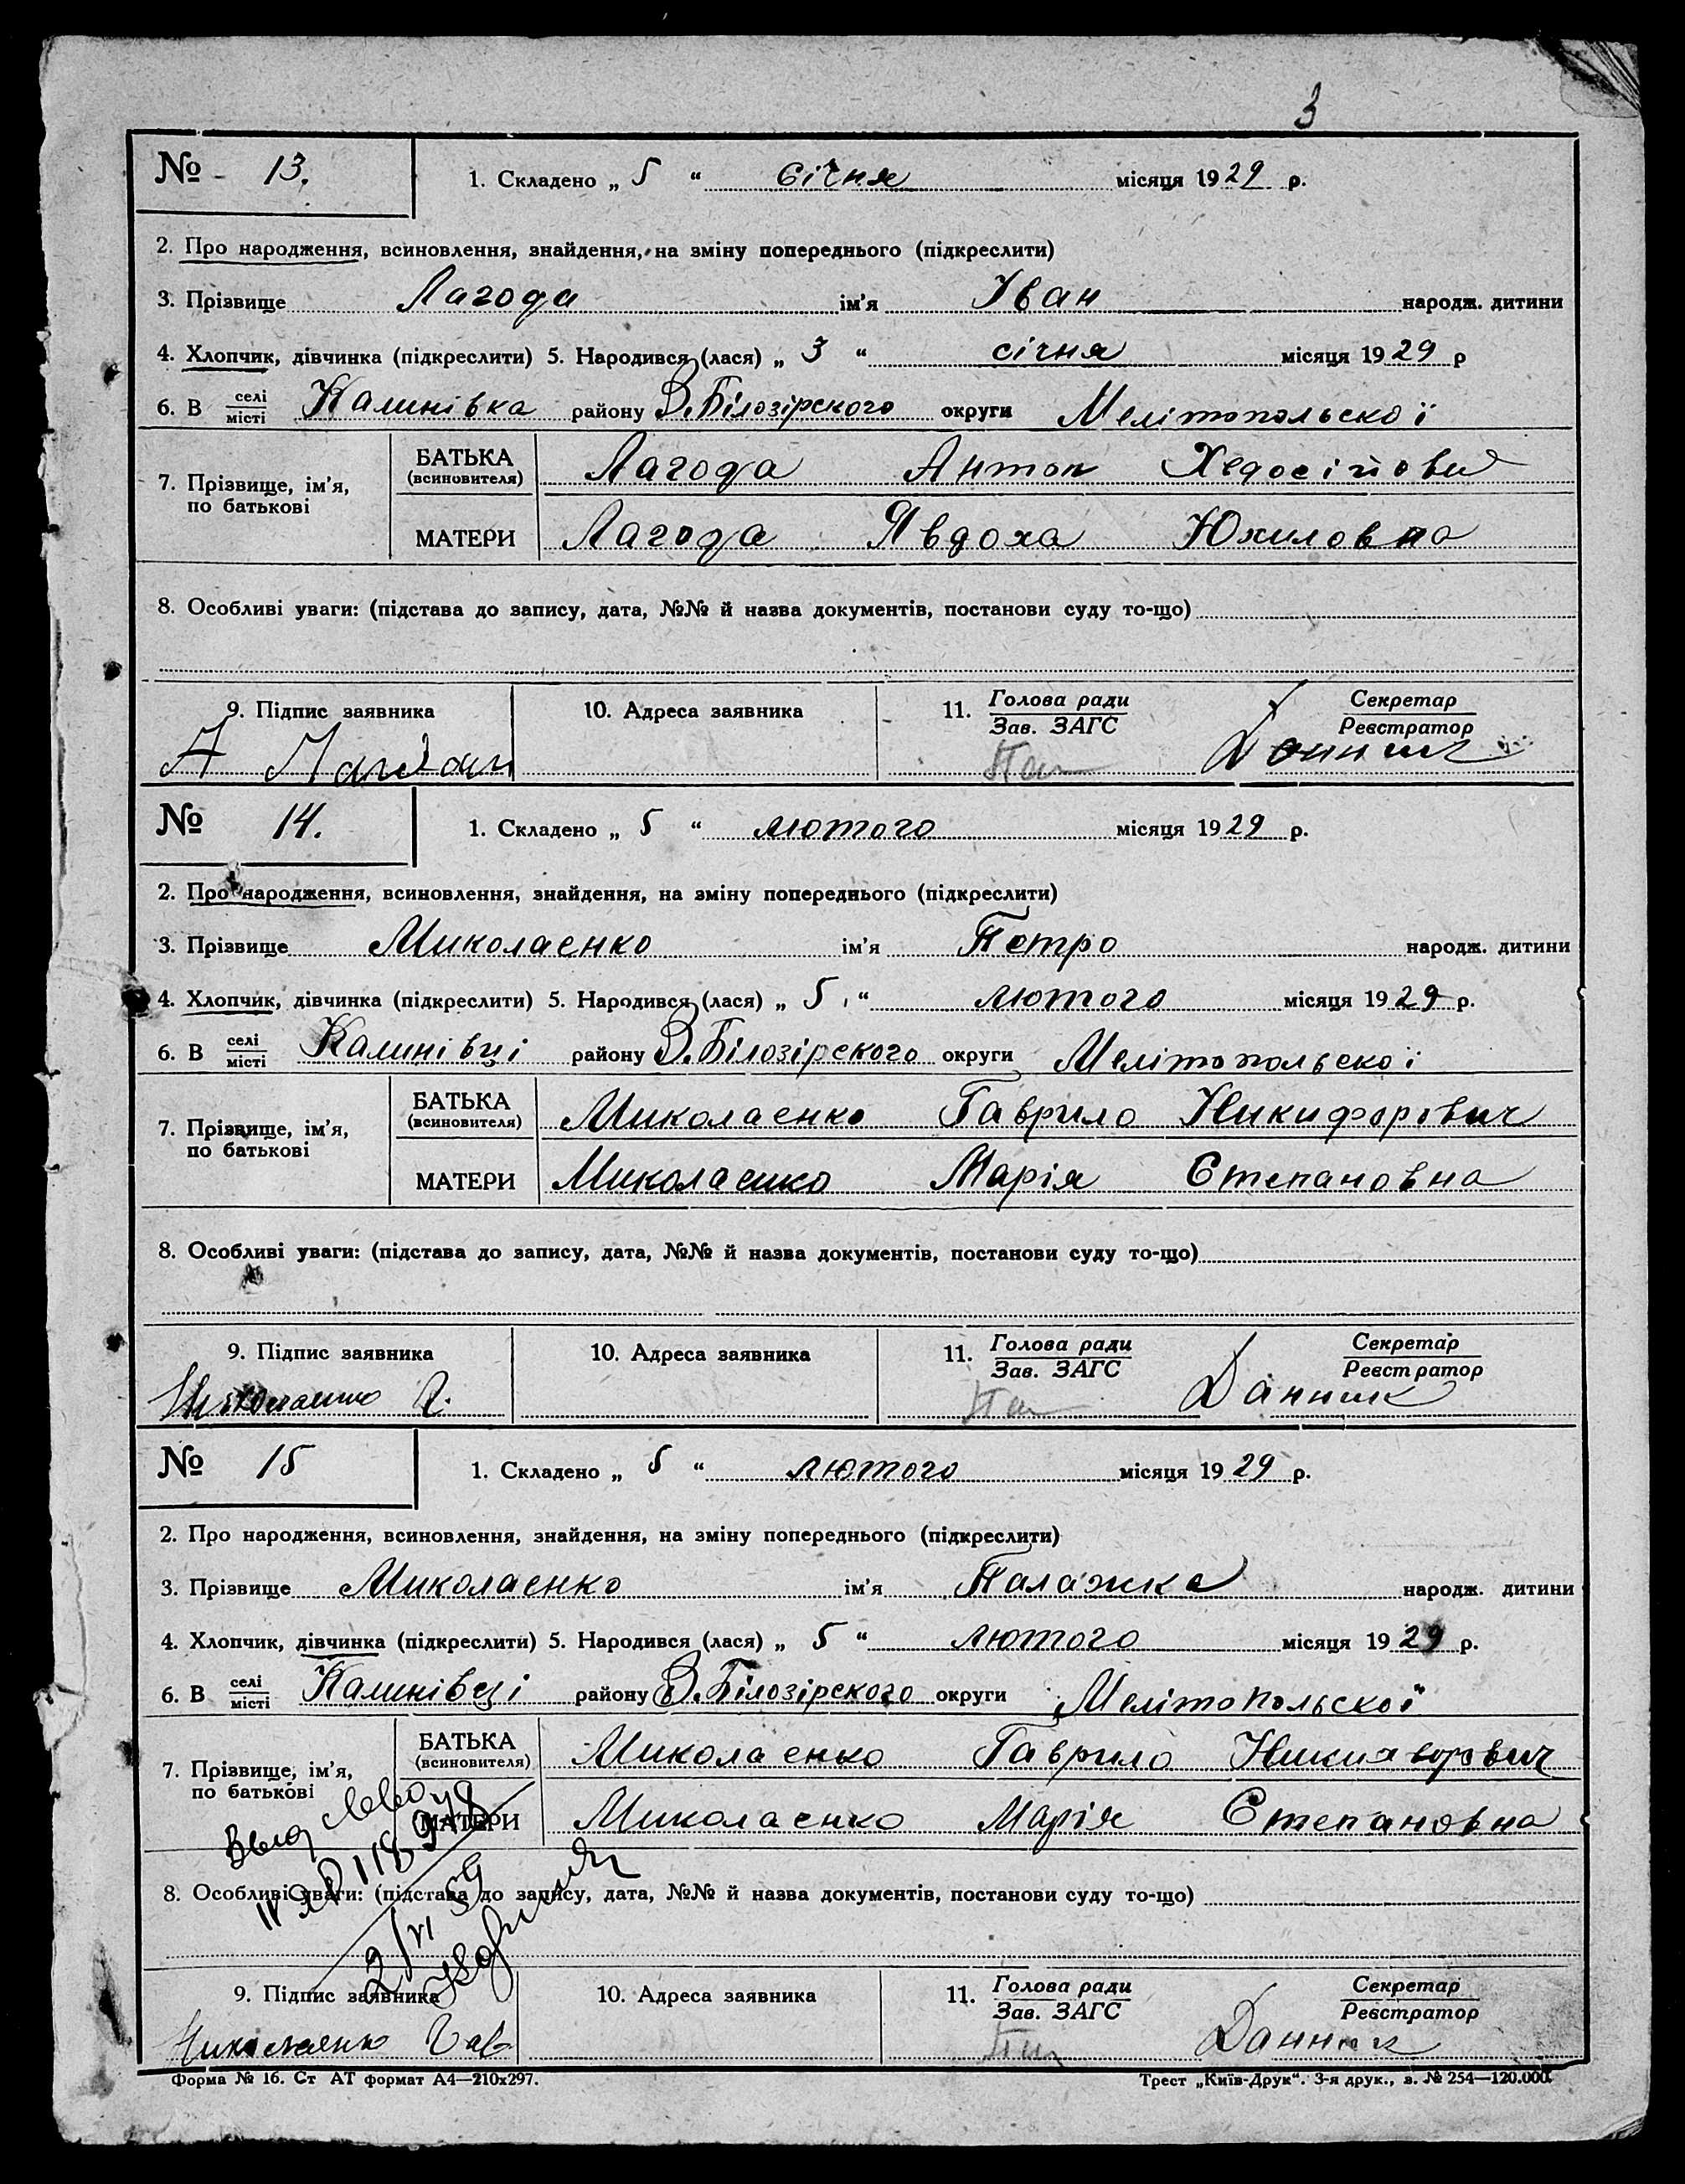 3
№ 13. 1. Складено „ 5 “ січня місяця 1929 р.
2. Про народження, всиновлення, знайдення, на зміну попереднього (підкреслити)
3. Прізвище Лагода ім’я Іван народж. дитини
4. Хлопчик, дівчинка (підкреслити) 5. Народився (лася) „ 3 “ січня місяця 1929 р
6. В селі/місті Калинівка району В.Білозірского округи Мелітопольскої
7. Прізвище, ім’я, по батькові
БАТЬКА (всиновителя) Лагода Антон Хедосійович
МАТЕРИ Лагода Явдоха Юхиловна
8. Особливі уваги: (підстава до запису, дата, №№ й назва документів, постанови суду то-що)
9. Підпис заявника 10. Адреса заявника 11. Голова ради/Зав. ЗАГС Секретар/Реєстратор
А Данник
№ 14. 1. Складено „ 5 “ лютого місяця 1929 р.
2. Про народження, всиновлення, знайдення, на зміну попереднього (підкреслити)
3. Прізвище Миколаєнко ім’я Петро народж. дитини
4. Хлопчик, дівчинка (підкреслити) 5. Народився (лася) „ 5 “ лютого місяця 1929 р.
6. В селі/місті Калинівці району В.Білозірского округи Мелітопольскої
7. Прізвище, ім’я, по батькові
БАТЬКА (всиновителя) Миколаєнко Гаврило Никифорович
МАТЕРИ Миколаєнко Марія Степановна
8. Особливі уваги: (підстава до запису, дата, №№ й назва документів, постанови суду то-що)
9. Підпис заявника 10. Адреса заявника 11. Голова ради/Зав. ЗАГС Секретар/Реєстратор
Данник
№ 15 1. Складено „ 5 “ лютого місяця 1929 р.
2. Про народження, всиновлення, знайдення, на зміну попереднього (підкреслити)
3. Прізвище Миколаєнко ім’я Палажка народж. дитини
4. Хлопчик, дівчинка (підкреслити) 5. Народився (лася) „ 5 “ лютого місяця 1929 р.
6. В селі/місті Калинівці району В.Білозірского округи Мелітопольскої
7. Прізвище, ім’я, по батькові
БАТЬКА (всиновителя) Миколаєнко Гаврило Никихворович
МАТЕРИ Миколаєнко Марія Степановна
8. Особливі уваги: (підстава до запису, дата, №№ й назва документів, постанови суду то-що)
2/VI 59
9. Підпис заявника 10. Адреса заявника 11. Голова ради/Зав. ЗАГС Секретар/Реєстратор
Данник
Форма № 16. Ст АТ формат А4—210х297. Трест „Київ-Друк“. 3-я друк., з. № 254—120.000.